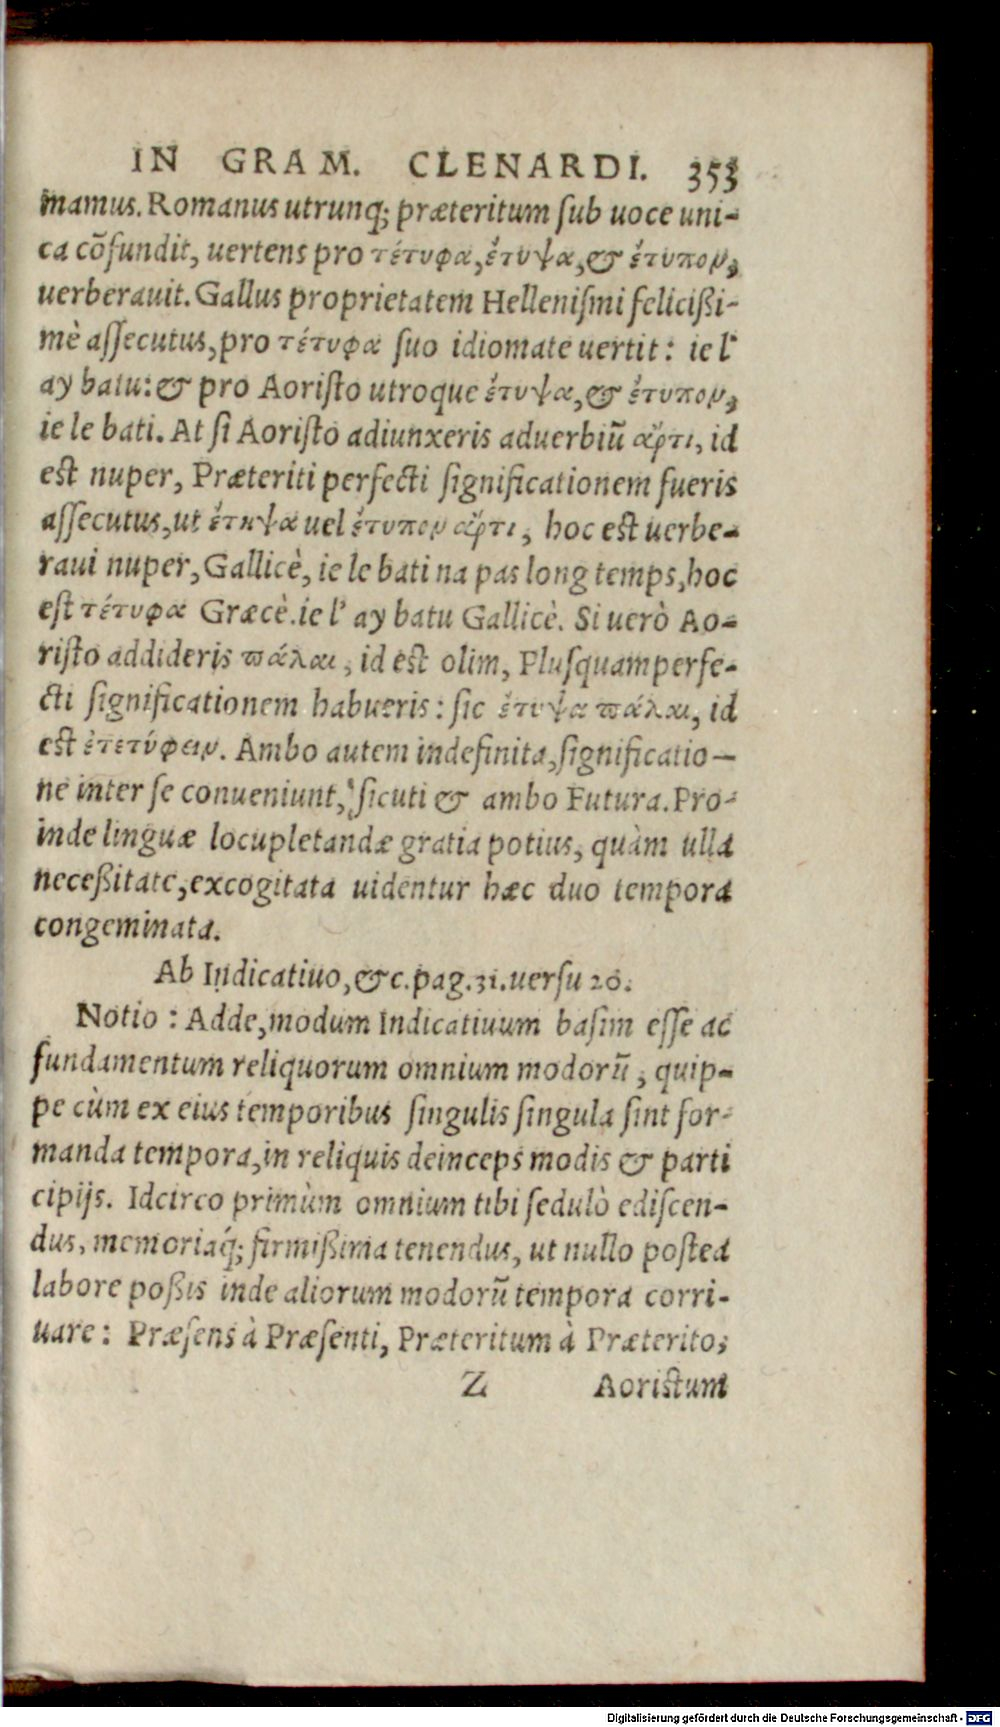 IN GRAM. CLENARDI. 353
mamus. Romanus utrunq; præteritum ſub uoce uni-
ca cõfundit, uertens pro τέτυφα, ἔτυψα, & ἔτυπον,
uerberauit. Gallus proprietatem Helleniſmi felicißi-
mè aſſecutus, pro τέτυφα ſuo idiomate uertit: ie l'
ay batu: & pro Aoriſto utroque ἔτυψα, & ἔτυπον,
ie le bati. At ſi Aoriſto adiunxeris aduerbiũ ἄρτι, id
est nuper, Præteriti perfecti ſignificationem fueris
aſſecutus, ut ἔτυψα uel ἔτυπον ἄρτι, hoc est uerbe-
raui nuper, Gallicè, ie le bati na pas long temps, hoc
eſt τέτυφα Græcè. ie l' ay batu Gallicè. Si uerò Ao-
riſto addideris πάλαι, id est olim, Pluſquamperfe-
cti ſignificationem habueris: ſic ἔτυψα πάλαι, id
est ἐτετύφειν. Ambo autem indefinita, ſignificatio-
ne inter ſe conueniunt, ſicuti & ambo Futura. Pro-
inde linguæ locupletandæ gratia potius, quàm ulla
neceßitate, excogitata uidentur hæc duo tempora
congeminata.
Ab Indicatiuo, &c. pag. 31. uerſu 20.
Notio: Adde, modum Indicatiuum baſim eſſe ac
fundamentum reliquorum omnium modorũ, quip-
pe cùm ex eius temporibus ſingulis ſingula ſint for-
manda tempora, in reliquis deinceps modis & parti
cipijs. Idcirco primùm omnium tibi ſedulò ediſcen-
dus, memoriaq́; firmißima tenendus, ut nullo postea
labore poßis inde aliorum modorũ tempora corri-
uare: Præſens à Præſenti, Præteritum à Præterito,
Z Aoristum
Digitalisierung gefördert durch die Deutsche Forschungsgemeinschaft - DFG